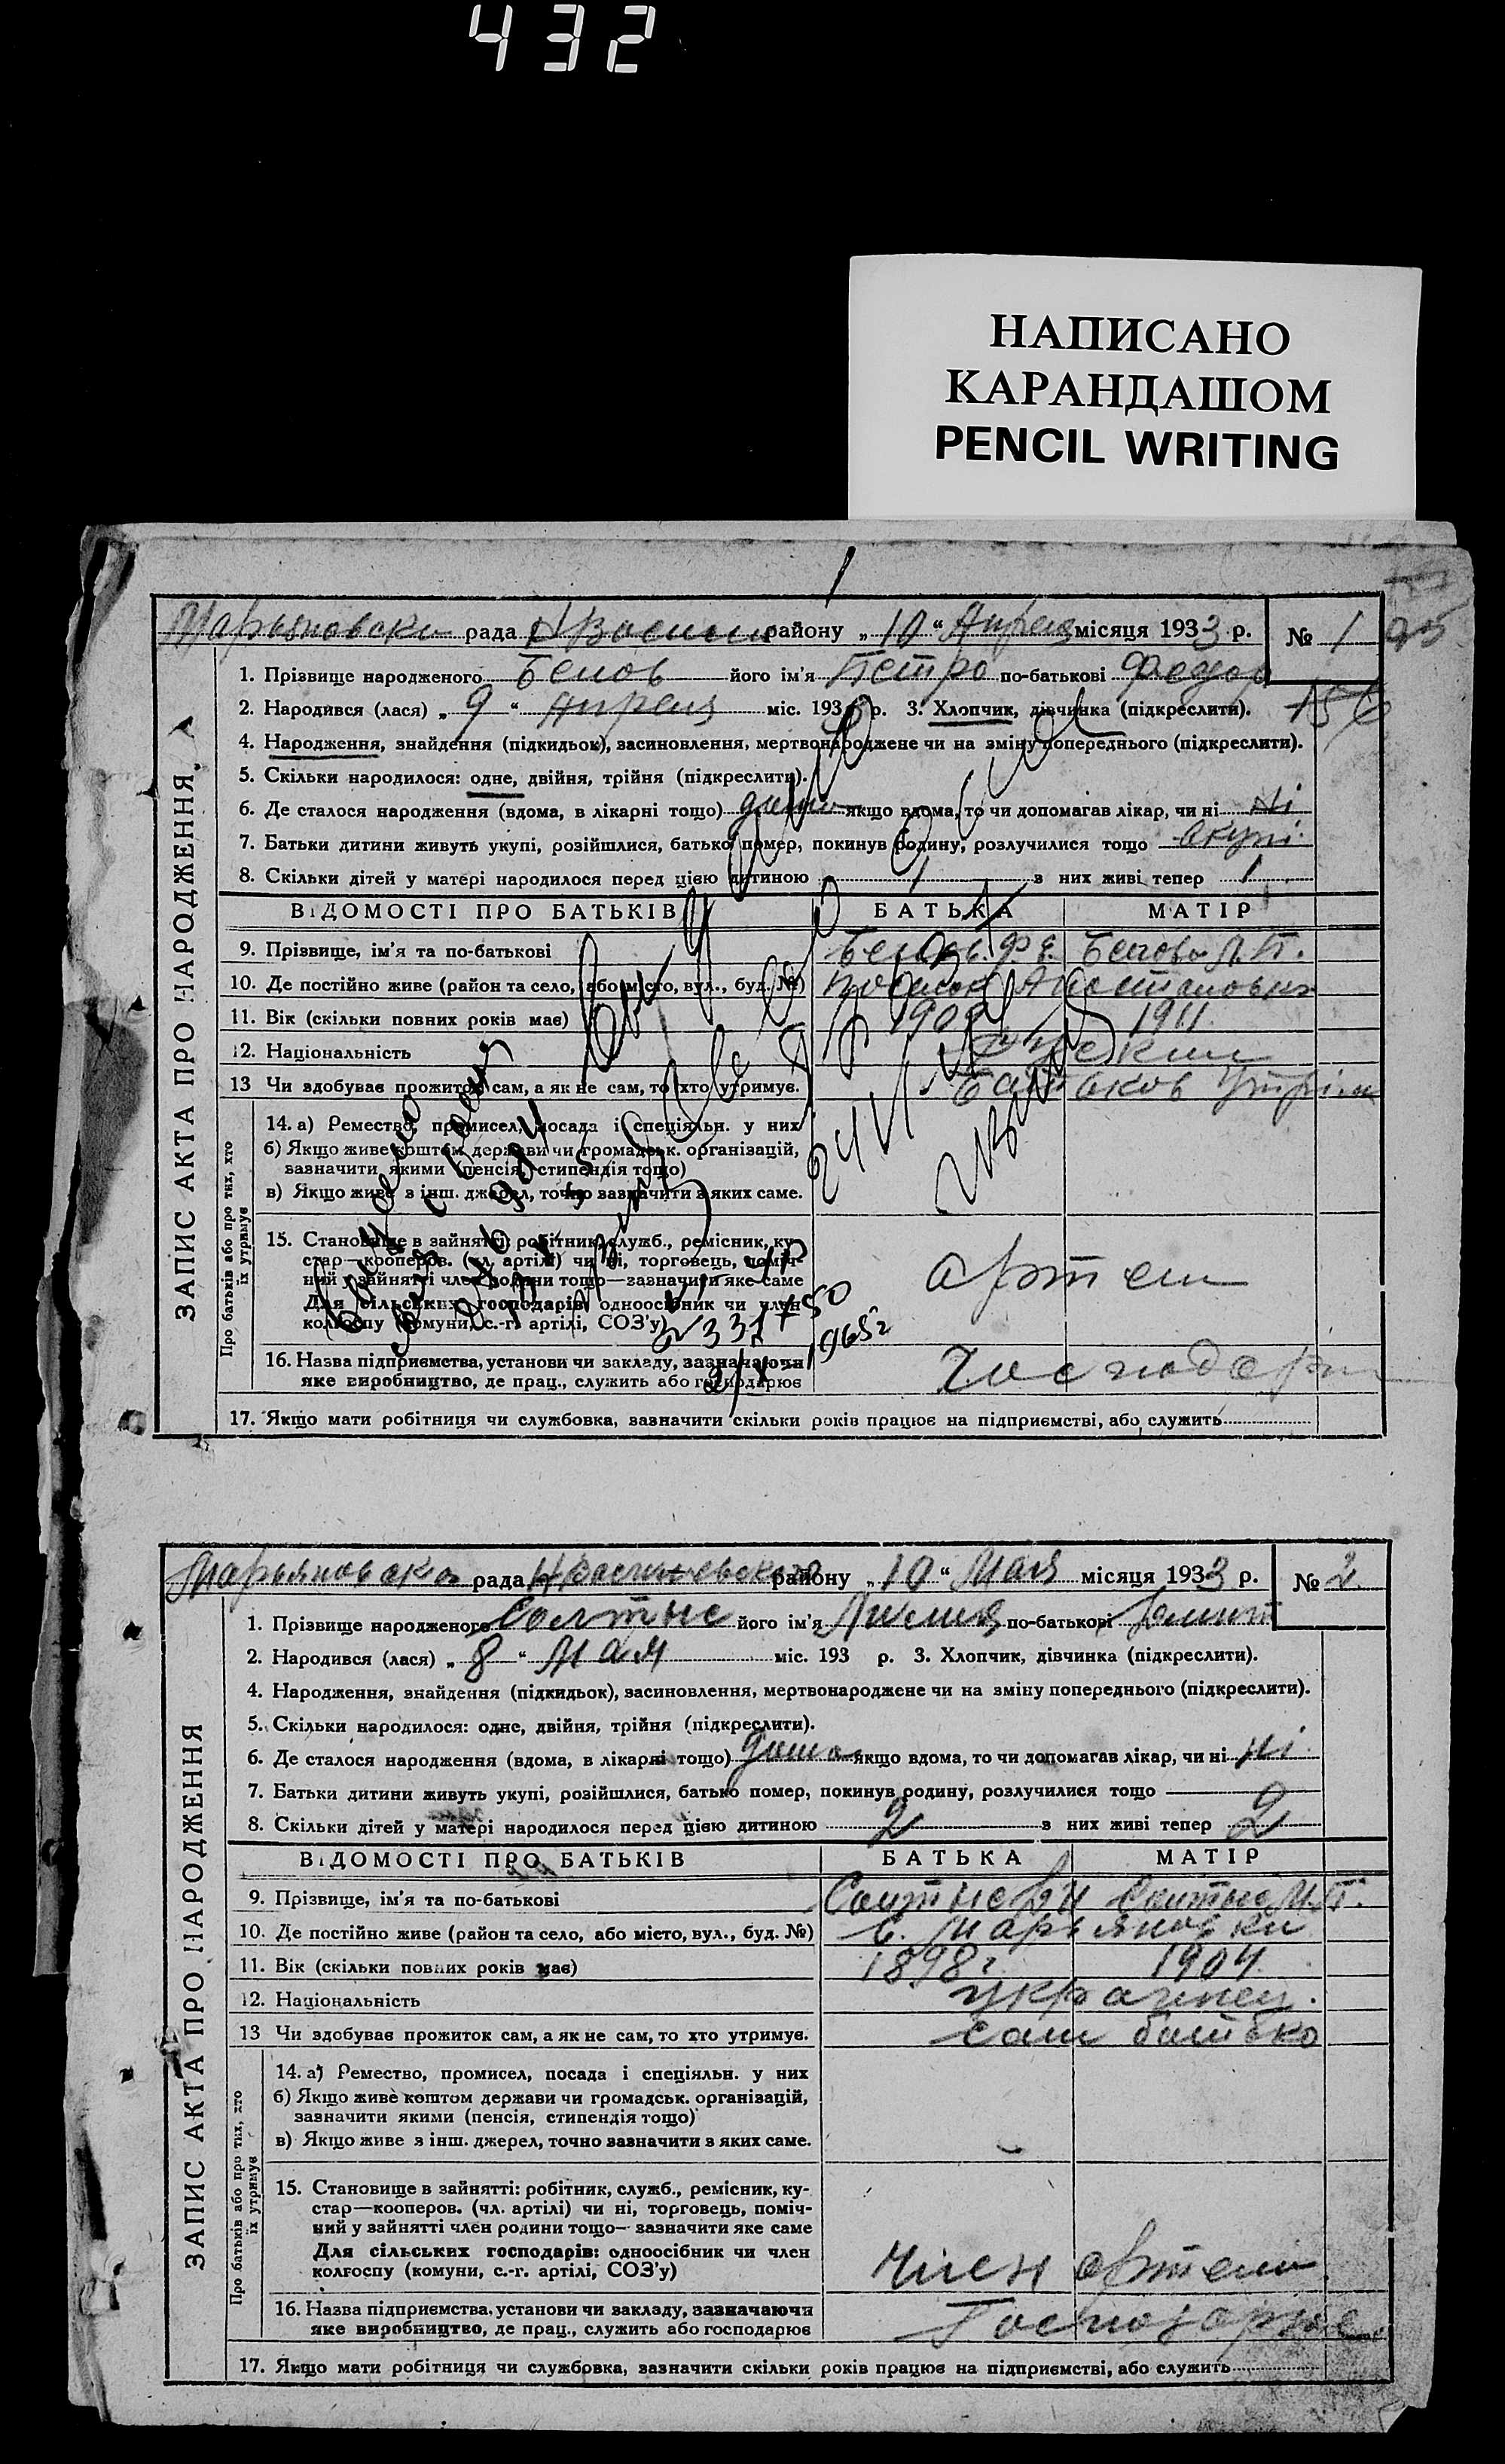 432
НАПИСАНО
КАРАНДАШОМ
PENCIL WRITING
1
Марьяновска рада району „ 10 “ Апреля місяця 1933 р. № 1 95
1. Прізвище народженого Белов його ім'я Петро по-батькові Федор
156
2. Народився (лася) „ 9 “ Апреля міс. 193 р. 3. Хлопчик, дівчинка (підкреслити).
4. Народження, знайдення (підкидьок), засиновлення, мертвонароджене чи на зміну попереднього (підкреслити).
5. Скільки народилося: одне, двійня, трійня (підкреслити).
6. Де сталося народження (вдома, в лікарні тощо) дома якщо вдома, то чи допомагав лікар, чи ні ні
7. Батьки дитини живуть укупі, розійшлися, батько помер, покинув родину, розлучилися тощо вкупі
8. Скільки дітей у матері народилося перед цією дитиною 1 з них живі тепер 1
ВІДОМОСТІ ПРО БАТЬКІВ БАТЬКА МАТІР
9. Прізвище, ім'я та по-батькові Белов Ф. Е. Белова Л. П.
10. Де постійно живе (район та село, або місто, вул., буд. №)
11. Вік (скільки повних років має) 1911
12. Національність
13 Чи здобуває прожиток сам, а як не сам, то хто утримує.
14. а) Ремество, промисел, посада і спеціяльн. у них
б) Якщо живе коштом держави чи громадськ. організацій,
зазначити якими (пенсія, стипендія тощо)
в) Якщо живе з інш. джерел, точно зазначити з яких саме.
15. Становище в зайнятті: робітник, служб., ремісник, ку-
стар—кооперов. (чл. артілі) чи ні, торговець, поміч-
ний у зайнятті член родини тощо—зазначити яке саме
Для сільських господарів: одноосібник чи член
колгоспу (комуни, с.-г. артілі, СОЗ'у)
артели
16. Назва підприємства, установи чи закладу, зазначаючи
яке виробництво, де прац., служить або господарює
17. Якщо мати робітниця чи службовка, зазначити скільки років працює на підприємстві, або служить
ЗАПИС АКТА ПРО НАРОДЖЕННЯ
Про батьків або про тих, хто
їх утримує
Марьяновска рада району „ 10 “ Мая місяця 1933 р. № 2
1. Прізвище народженого Солтыс його ім'я по-батькові
2. Народився (лася) „ 8 “ Мая міс. 193 р. 3. Хлопчик, дівчинка (підкреслити).
4. Народження, знайдення (підкидьок), засиновлення, мертвонароджене чи на зміну попереднього (підкреслити).
5. Скільки народилося: одне, двійня, трійня (підкреслити).
6. Де сталося народження (вдома, в лікарні тощо) дома якщо вдома, то чи допомагав лікар, чи ні ні
7. Батьки дитини живуть укупі, розійшлися, батько помер, покинув родину, розлучилися тощо
8. Скільки дітей у матері народилося перед цією дитиною 2 з них живі тепер 2
ВІДОМОСТІ ПРО БАТЬКІВ БАТЬКА МАТІР
9. Прізвище, ім'я та по-батькові Солтыс Солтыс И. П.
10. Де постійно живе (район та село, або місто, вул., буд. №) с. Марьяновки
11. Вік (скільки повних років має) 1898 г. 1904
12. Національність украинец.
13 Чи здобуває прожиток сам, а як не сам, то хто утримує. сам батько
14. а) Ремество, промисел, посада і спеціяльн. у них
б) Якщо живе коштом держави чи громадськ. організацій,
зазначити якими (пенсія, стипендія тощо)
в) Якщо живе з інш. джерел, точно зазначити з яких саме.
15. Становище в зайнятті: робітник, служб., ремісник, ку-
стар—кооперов. (чл. артілі) чи ні, торговець, поміч-
ний у зайнятті член родини тощо—зазначити яке саме
Для сільських господарів: одноосібник чи член
колгоспу (комуни, с.-г. артілі, СОЗ'у)
член артели
16. Назва підприємства, установи чи закладу, зазначаючи
яке виробництво, де прац., служить або господарює
17. Якщо мати робітниця чи службовка, зазначити скільки років працює на підприємстві, або служить
ЗАПИС АКТА ПРО НАРОДЖЕННЯ
Про батьків або про тих, хто
їх утримує